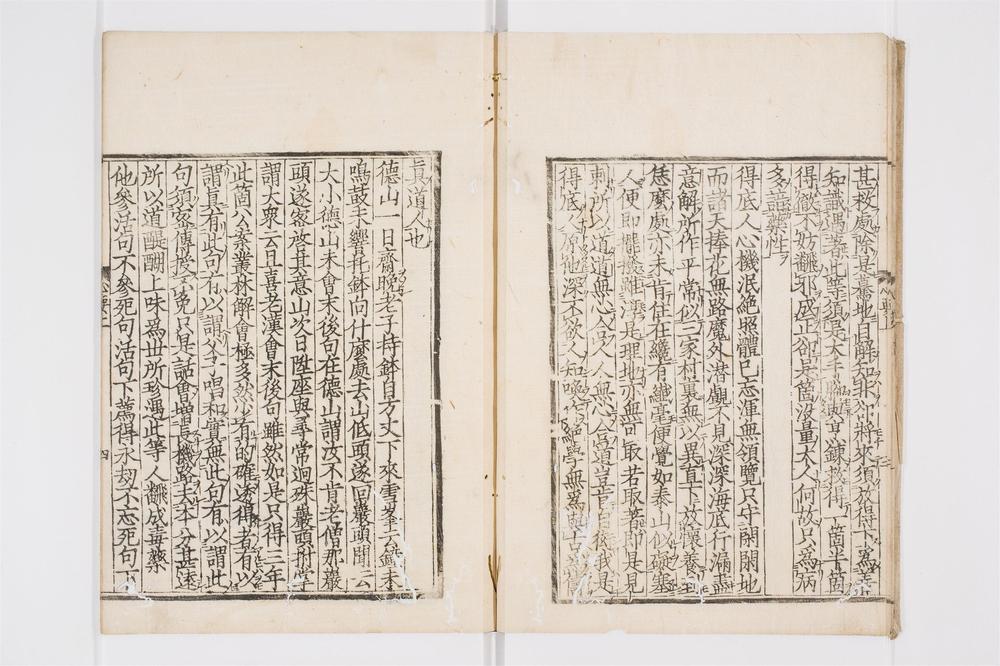 甚救處陰是驀地自解知非却將來須放得下寫
知識遇著此等須是大手與煅鍊救得一箇半箇
得飯不妨翻邪成正却是箇沒量大人何故只爲病
多諳藥性
得底人心機泯絶照體已忘渾無領覽只守閑閑地
而諸天捧花無路魔外潜覷不見深深海底行漏盡
意解所作平常似三家村裏無以異直下放懷養到
恁麼處亦未肯住在纔有纖毫便覺如泰山似礙塞
人便即擺撥雖淳是理地亦無可取若取著即是見
刺所以道道無心合人人無心合道豈肯自衒我是
得底人原他深不欲人知喚作絶學無爲與古爲儔
眞道人也
德山一日齋晚老子持鉢自方丈下來雪峯云鐘未
鳴鼓未響托鉢向什麼處去山低頭遂回巖頭聞云
大小德山未會末後句在德山謂汝不肯老僧那巖
頭遂密啓其意山次日陞座與尋常迥殊巖頭拊掌
謂大衆云且喜老漢會末後句雖然如是只得三年
此箇公案叢林解會極多然少有的確透得者有以
謂眞有此句有以謂父子唱和實無此句有以謂此
句須密傳授不免只是話會增長機路去本分甚遠
所以道醍醐上味爲世所珍遇此等人翻成毒藥
他參活句不參死句活句下薦得永劫不忘死句下